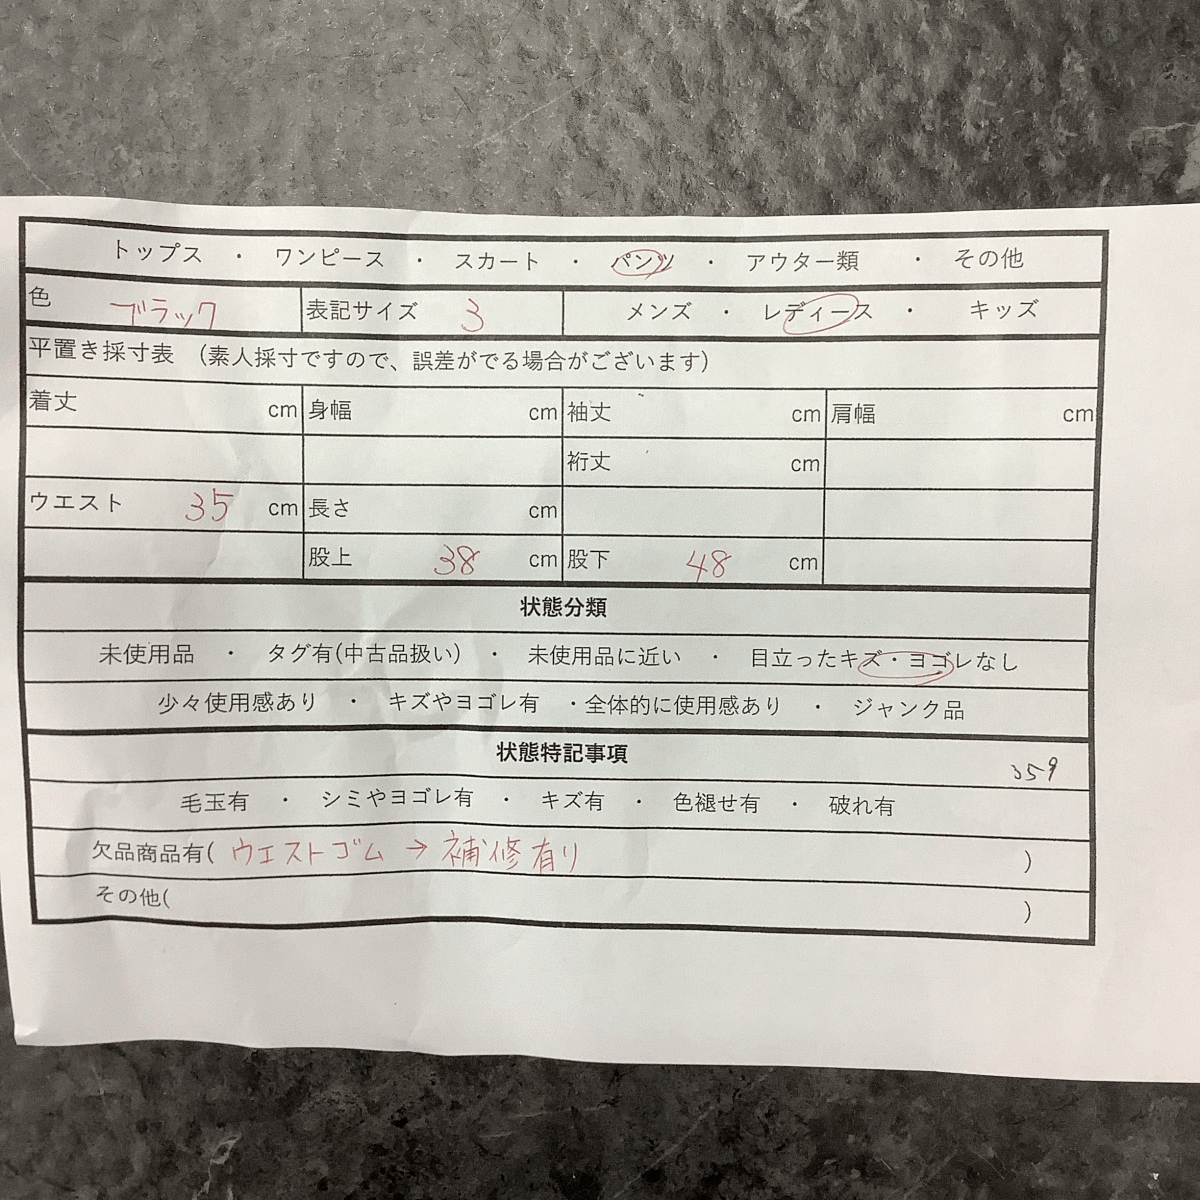 トップス ・ ワンピース ・ スカート ・ パンツ ・ アウター類 ・ その他
色 ブラック 表記サイズ 3 メンズ ・ レディース ・ キッズ
平置き採寸表 （素人採寸ですので、誤差がでる場合がございます）
着丈 cm 身幅 cm 袖丈 cm 肩幅 cm
裄丈 cm
ウエスト 35 cm 長さ cm
股上 38 cm 股下 48 cm
状態分類
未使用品 ・ タグ有(中古品扱い) ・ 未使用品に近い ・ 目立ったキズ・ヨゴレなし
少々使用感あり ・ キズやヨゴレ有 ・全体的に使用感あり ・ ジャンク品
状態特記事項
359
毛玉有 ・ シミやヨゴレ有 ・ キズ有 ・ 色褪せ有 ・ 破れ有
欠品商品有( ウエストゴム → 補修有り )
その他( )